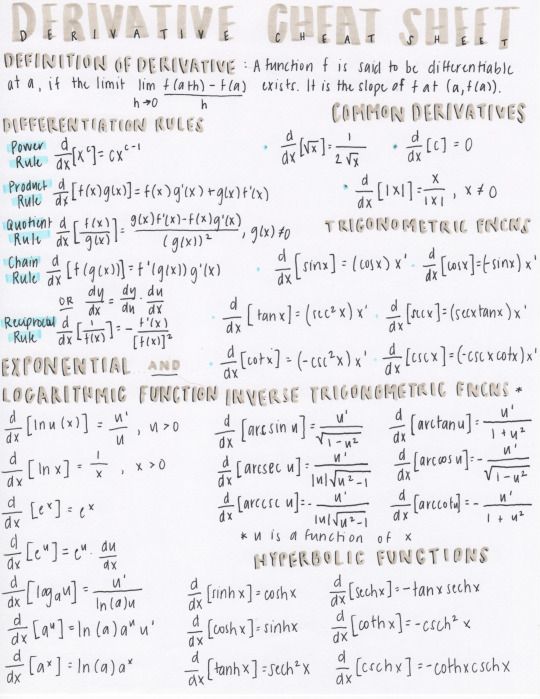 DERIVATIVE CHEAT SHEET
DERIVATIVE CHEAT SHEET
DEFINITION OF DERIVATIVE : A function f is said to be differentiable
at a, if the limit lim h→0 f(a+h) - f(a) / h exists. It is the slope of f at (a, f(a)).
DIFFERENTIATION RULES
Power Rule d/dx [x^c] = cx^(c-1)
Product Rule d/dx [f(x)g(x)] = f(x)g'(x) + g(x)f'(x)
Quotient Rule d/dx [f(x)/g(x)] = g(x)f'(x) - f(x)g'(x) / (g(x))², g(x) ≠ 0
Chain Rule d/dx [f(g(x))] = f'(g(x)) g'(x)
OR dy/dx = dy/du · du/dx
Reciprocal Rule d/dx [1/f(x)] = - f'(x)/[f(x)]²
COMMON DERIVATIVES
· d/dx [√x] = 1/(2√x) · d/dx [c] = 0
· d/dx [|x|] = x/|x| , x ≠ 0
TRIGONOMETRIC FNCNS
· d/dx [sinx] = (cosx) x' · d/dx [cosx] = (-sinx) x'
· d/dx [tanx] = (sec²x) x' · d/dx [secx] = (secxtanx) x'
· d/dx [cotx] = (-csc²x) x' · d/dx [cscx] = (-cscxcotx) x'
EXPONENTIAL AND
LOGARITHMIC FUNCTION
d/dx [ln u(x)] = u'/u , u > 0
d/dx [lnx] = 1/x , x > 0
d/dx [e^x] = e^x
d/dx [e^u] = e^u · du/dx
d/dx [log_a u] = u'/(ln(a)u)
d/dx [a^u] = ln(a) a^u u'
d/dx [a^x] = ln(a) a^x
INVERSE TRIGONOMETRIC FNCNS *
d/dx [arcsin u] = u'/√(1-u²) d/dx [arctanu] = u'/(1+u²)
d/dx [arcsec u] = u'/(|u|√(u²-1)) d/dx [arccos u] = - u'/√(1-u²)
d/dx [arccsc u] = - u'/(|u|√(u²-1)) d/dx [arccotu] = - u'/(1+u²)
* u is a function of x
HYPERBOLIC FUNCTIONS
d/dx [sinhx] = coshx d/dx [sechx] = -tanxsechx
d/dx [coshx] = sinhx d/dx [cothx] = -csch²x
d/dx [tanhx] = sech²x d/dx [cschx] = -cothxcschx